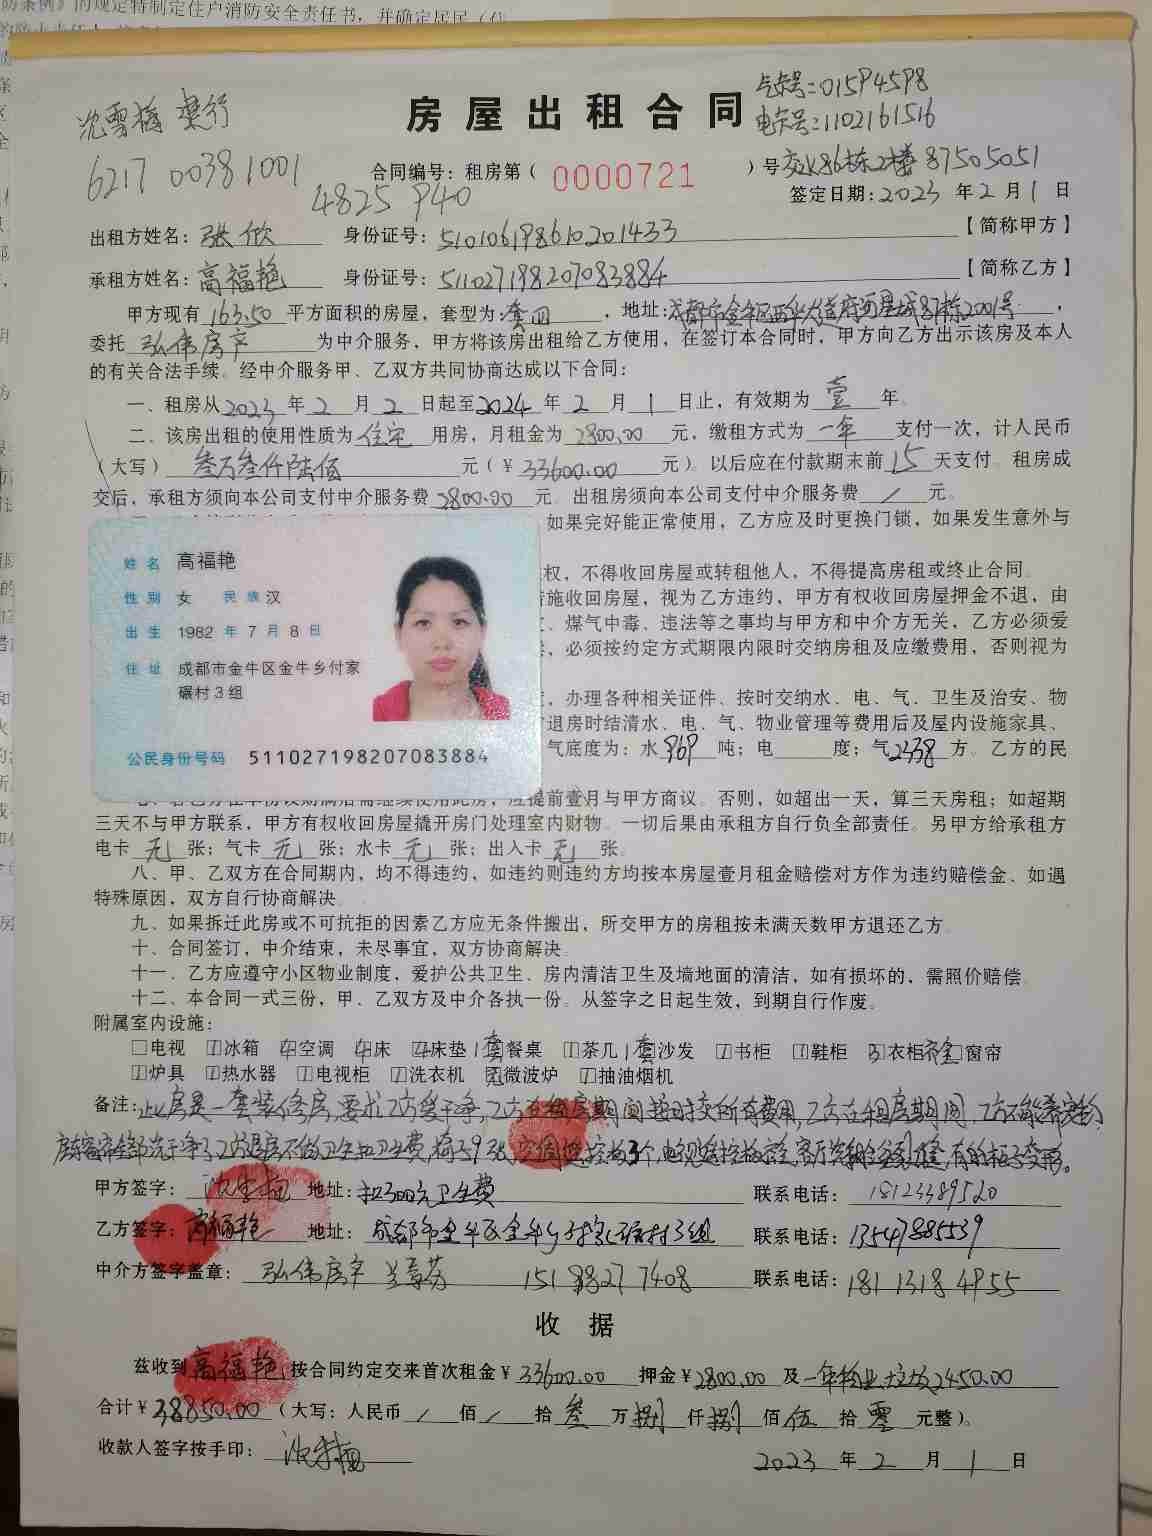 防条例》的规定特制定住户消防安全责任书，并确定居民（住
房屋出租合同
气卡号:01594598
电卡号:1102161516
沈雪梅 建行
6217 00381001
4825 940
合同编号：租房第（ 0000721 ）号交水86栋2楼 87505051
签定日期：2023 年 2 月 1 日
出租方姓名：张欣 身份证号：510106198610201433 【简称甲方】
承租方姓名：高福艳 身份证号：511027198207083884 【简称乙方】
甲方现有 163.50 平方面积的房屋，套型为：套四，地址：成都市金牛区西华大道府河星城87栋2001号，
委托 弘伟房产 为中介服务，甲方将该房出租给乙方使用，在签订本合同时，甲方向乙方出示该房及本人
的有关合法手续。经中介服务甲、乙双方共同协商达成以下合同：
一、租房从2023年 2 月 2 日起至2024年 2 月 1 日止，有效期为 壹 年。
二、该房出租的使用性质为 住宅 用房，月租金为 2800.00 元，缴租方式为 一年 支付一次，计人民币
（大写） 叁万叁仟陆佰 元（￥33600.00 元）。以后应在付款期末前 15 天支付。租房成
交后，承租方须向本公司支付中介服务费 2800.00 元。出租房须向本公司支付中介服务费 / 元。
如果完好能正常使用，乙方应及时更换门锁，如果发生意外与
权，不得收回房屋或转租他人，不得提高房租或终止合同。
措施收回房屋，视为乙方违约，甲方有权收回房屋押金不退，由
、煤气中毒、违法等之事均与甲方和中介方无关，乙方必须爱
，必须按约定方式期限内限时交纳房租及应缴费用，否则视为
，办理各种相关证件、按时交纳水、电、气、卫生及治安、物
退房时结清水、电、气、物业管理等费用后及屋内设施家具、
气底度为：水 969 吨；电 度；气 2338 方。乙方的民
姓名 高福艳
性别 女 民族 汉
出生 1982 年 7 月 8 日
住址 成都市金牛区金牛乡付家
碾村3组
公民身份号码 511027198207083884
七、若乙方在年份以期满后需继续使用此房，应提前壹月与甲方商议。否则，如超出一天，算三天房租；如超期
三天不与甲方联系，甲方有权收回房屋撬开房门处理室内财物。一切后果由承租方自行负全部责任。另甲方给承租方
电卡 无 张；气卡 无 张；水卡 无 张；出入卡 无 张。
八、甲、乙双方在合同期内，均不得违约，如违约则违约方均按本房屋壹月租金赔偿对方作为违约赔偿金、如遇
特殊原因，双方自行协商解决。
九、如果拆迁此房或不可抗拒的因素乙方应无条件搬出，所交甲方的房租按未满天数甲方退还乙方。
十、合同签订，中介结束，未尽事宜，双方协商解决。
十一、乙方应遵守小区物业制度，爱护公共卫生、房内清洁卫生及墙地面的清洁，如有损坏的，需照价赔偿。
十二、本合同一式三份，甲、乙双方及中介各执一份。从签字之日起生效，到期自行作废。
附属室内设施：
□电视 1冰箱 4空调 4床 4床垫 1套餐桌 1茶几 1套沙发 1书柜 1鞋柜 3衣柜 全窗帘
1炉具 1热水器 1电视柜 1洗衣机 无微波炉 1抽油烟机
备注：此房是一套装修房，要求乙方爱干净，乙方在租房期间按时交所有费用，乙方在租房期间，乙方不能养宠物，
椅子9张，空调遥控板3个，有的柜子变形。
甲方签字： 沈雪梅 地址：扣300元卫生费 联系电话： 18123389520
乙方签字：高福艳 地址： 成都市金牛区金牛乡付家碾村3组 联系电话：13547885539
中介方签字盖章： 弘伟房产 兰 芬 15188277408 联系电话：18113184955
收据
兹收到高福艳 按合同约定交来首次租金￥33600.00 押金￥2800.00 及一年物业、垃圾2450.00
合计￥38850.00 （大写：人民币 / 佰 / 拾 叁 万 捌 仟 捌 佰 伍 拾 零 元整）。
收款人签字按手印： 沈雪梅
2023 年 2 月 1 日